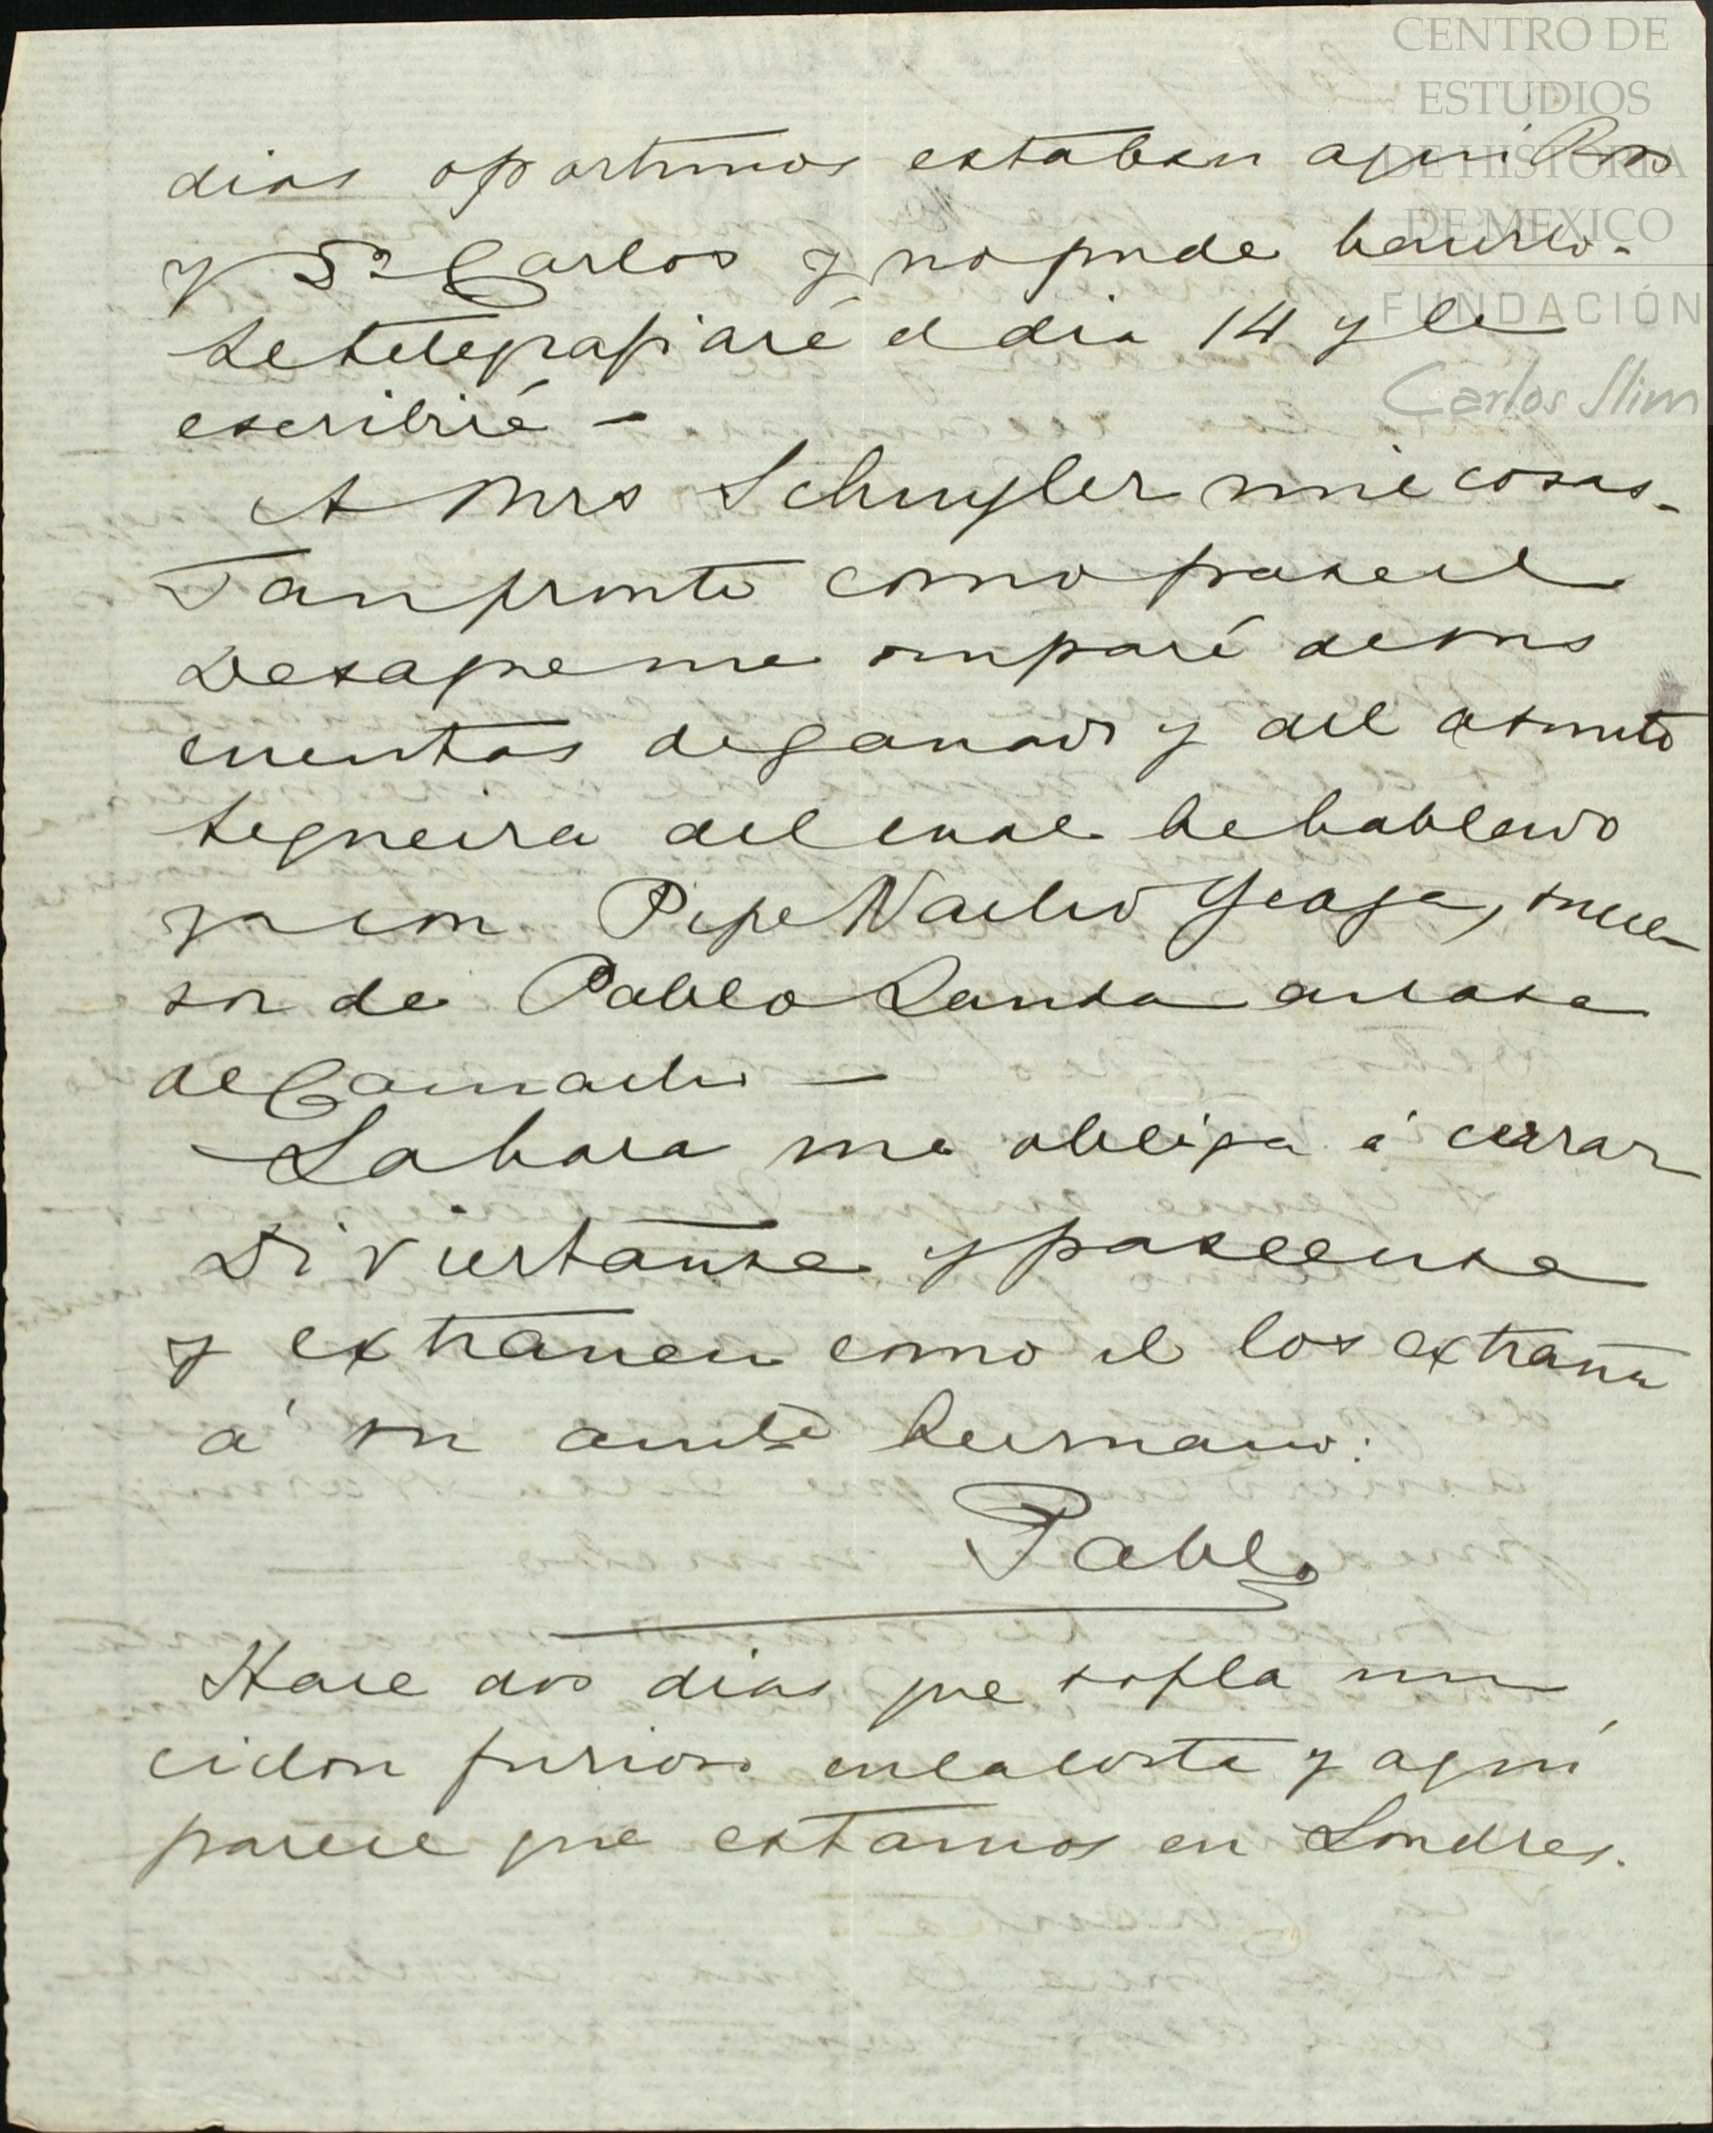 CENTRO DE
ESTUDIOS
DE HISTORIA
DE MEXICO
FUNDACIÓN
Carlos Slim
dias oportunos estaban aqui
y Dn Carlos y no pude hacerlo.
Le telegrafiaré el dia 14 y le
escribiré —
A Mrs Schuyler mil cosas.
Tan pronto como pase el
Desague me ocuparé de sus
cuentas de ganado y del asunto
Segueira del cual he hablado
ya con Pipe Nacho Yeaga, suce-
sor de Pablo Landa en casa
de Camacho —
La hora me obliga á cerrar
Diviertanse y paseense
y extrañen como el los extraña
á su amte hermano:
Pablo
Hace dos dias que sopla un
ciclon furioso en la costa y aqui
parece que estamos en Londres.